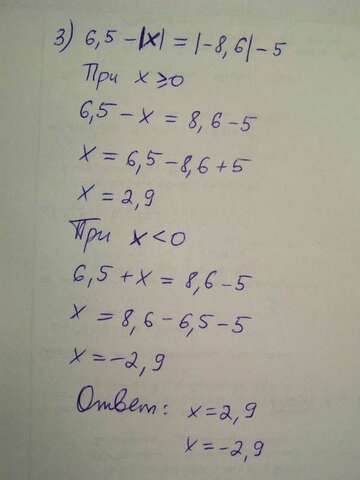 3) 6,5 - |x| = |-8,6| - 5
При x ≥ 0
6,5 - x = 8,6 - 5
x = 6,5 - 8,6 + 5
x = 2,9
При x < 0
6,5 + x = 8,6 - 5
x = 8,6 - 6,5 - 5
x = -2,9
Ответ: x = 2,9
x = -2,9